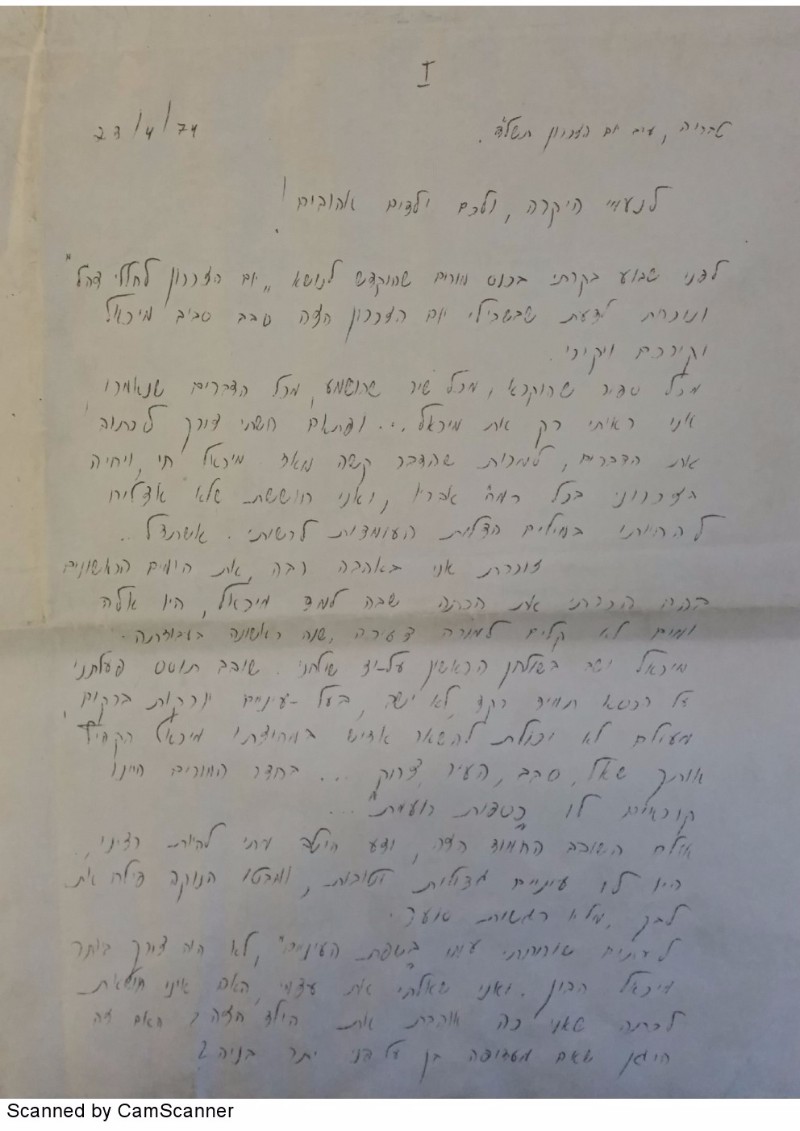 I
טבריה, ערב יום הזכרון תשל"ד.
23/4/74
לנעמי היקרה, ולכם ילדים אהובים!
לפני שבוע בקרתי בכנס מורים שהוקדש לנושא "יום הזכרון לחללי צהל"
ונוכחת לדעת שבשבילי יום הזכרון הזה סבב סביב מיכאל
יקירכם ויקירי.
מכל ספור שהוקרא, מכל שיר שהושמע, מכל הדברים שנאמרו
אני ראיתי רק את מיכאל... ופתאום חשתי צורך לכתוב
את הדברים, למרות שהדבר קשה מאד. מיכאל חי, ויחיה
בזכרוני בכל רמ"ח אבריו, ואני חוששת שלא אצליח
להחיותו במילים הדלות העומדות לרשותי. אשתדל...
זוכרת אני באהבה רבה, את הימים הראשונים
בהם הכרתי את הכתה שבה למד מיכאל, היו אלה
ימים לא קלים למורה צעירה, שנה ראשונה בעבודתה.
מיכאל ישב בשולחן הראשון על-יד שולחני. שובב תוסס
על הכסא תמיד רקד, לא ישב, בעל עיניים יורקות ברקים,
מעולם לא יכולת להשאר אדיש במחיצתו מיכאל הקפיץ
אותך שאל, סבב, העיר, צחק... בחדר המורים היינו
קוראים לו "כספית רועמת"...
אולם השובב החמוד הזה, ידע היטב מתי להיות רציני,
היו לו עיניים גדולות וטובות, ומבטו הנוקב פילח את
לבך, מלא רגשות סוער.
לעתים שוחחתי עמו "בשפת העיניים", לא היה צורך ביותר
מיכאל הבין. ואני שאלתי את עצמי, האם איני חוטאת
לכתה שאני כה אוהבת את הילד הזה? האם זה
הוגן שאם מעדיפה בן על פני יתר בניה?
Scanned by CamScanner